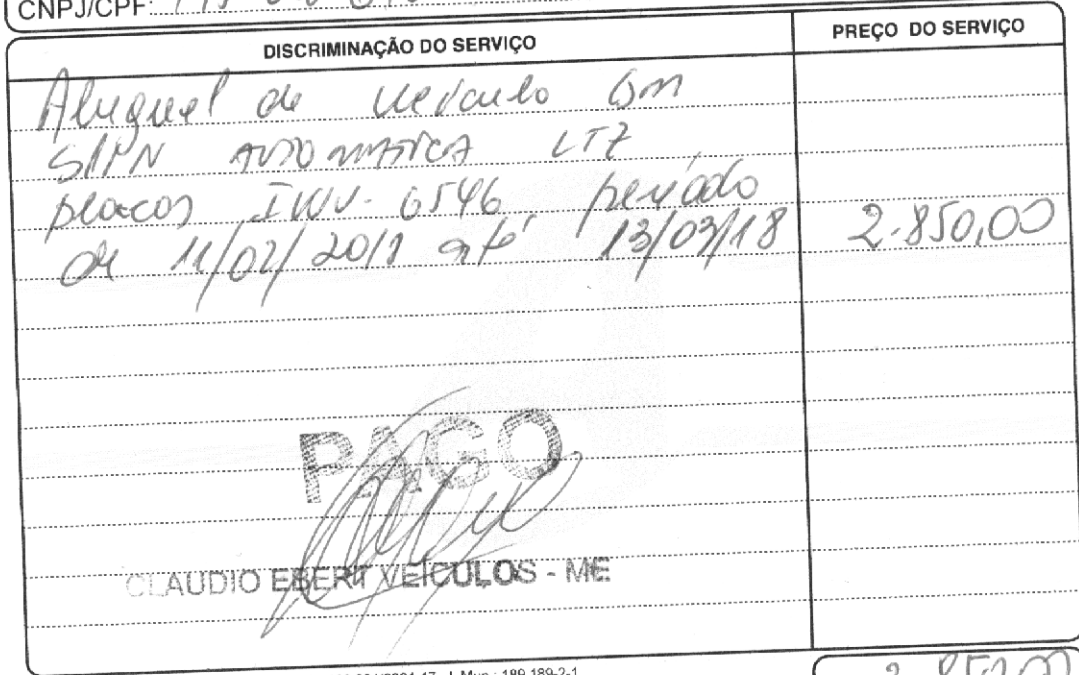 CNPJ/CPF:
DISCRIMINAÇÃO DO SERVIÇO
PREÇO DO SERVIÇO
Aluguel de veículo Gm
SPIN AUTOMATICA LTZ
placas IWV-6546 período
de 11/02/2018 até 13/03/18 2.850,00
PAGO
CLAUDIO EBERT VEÍCULOS - ME
189.189-2-1
2.850,00